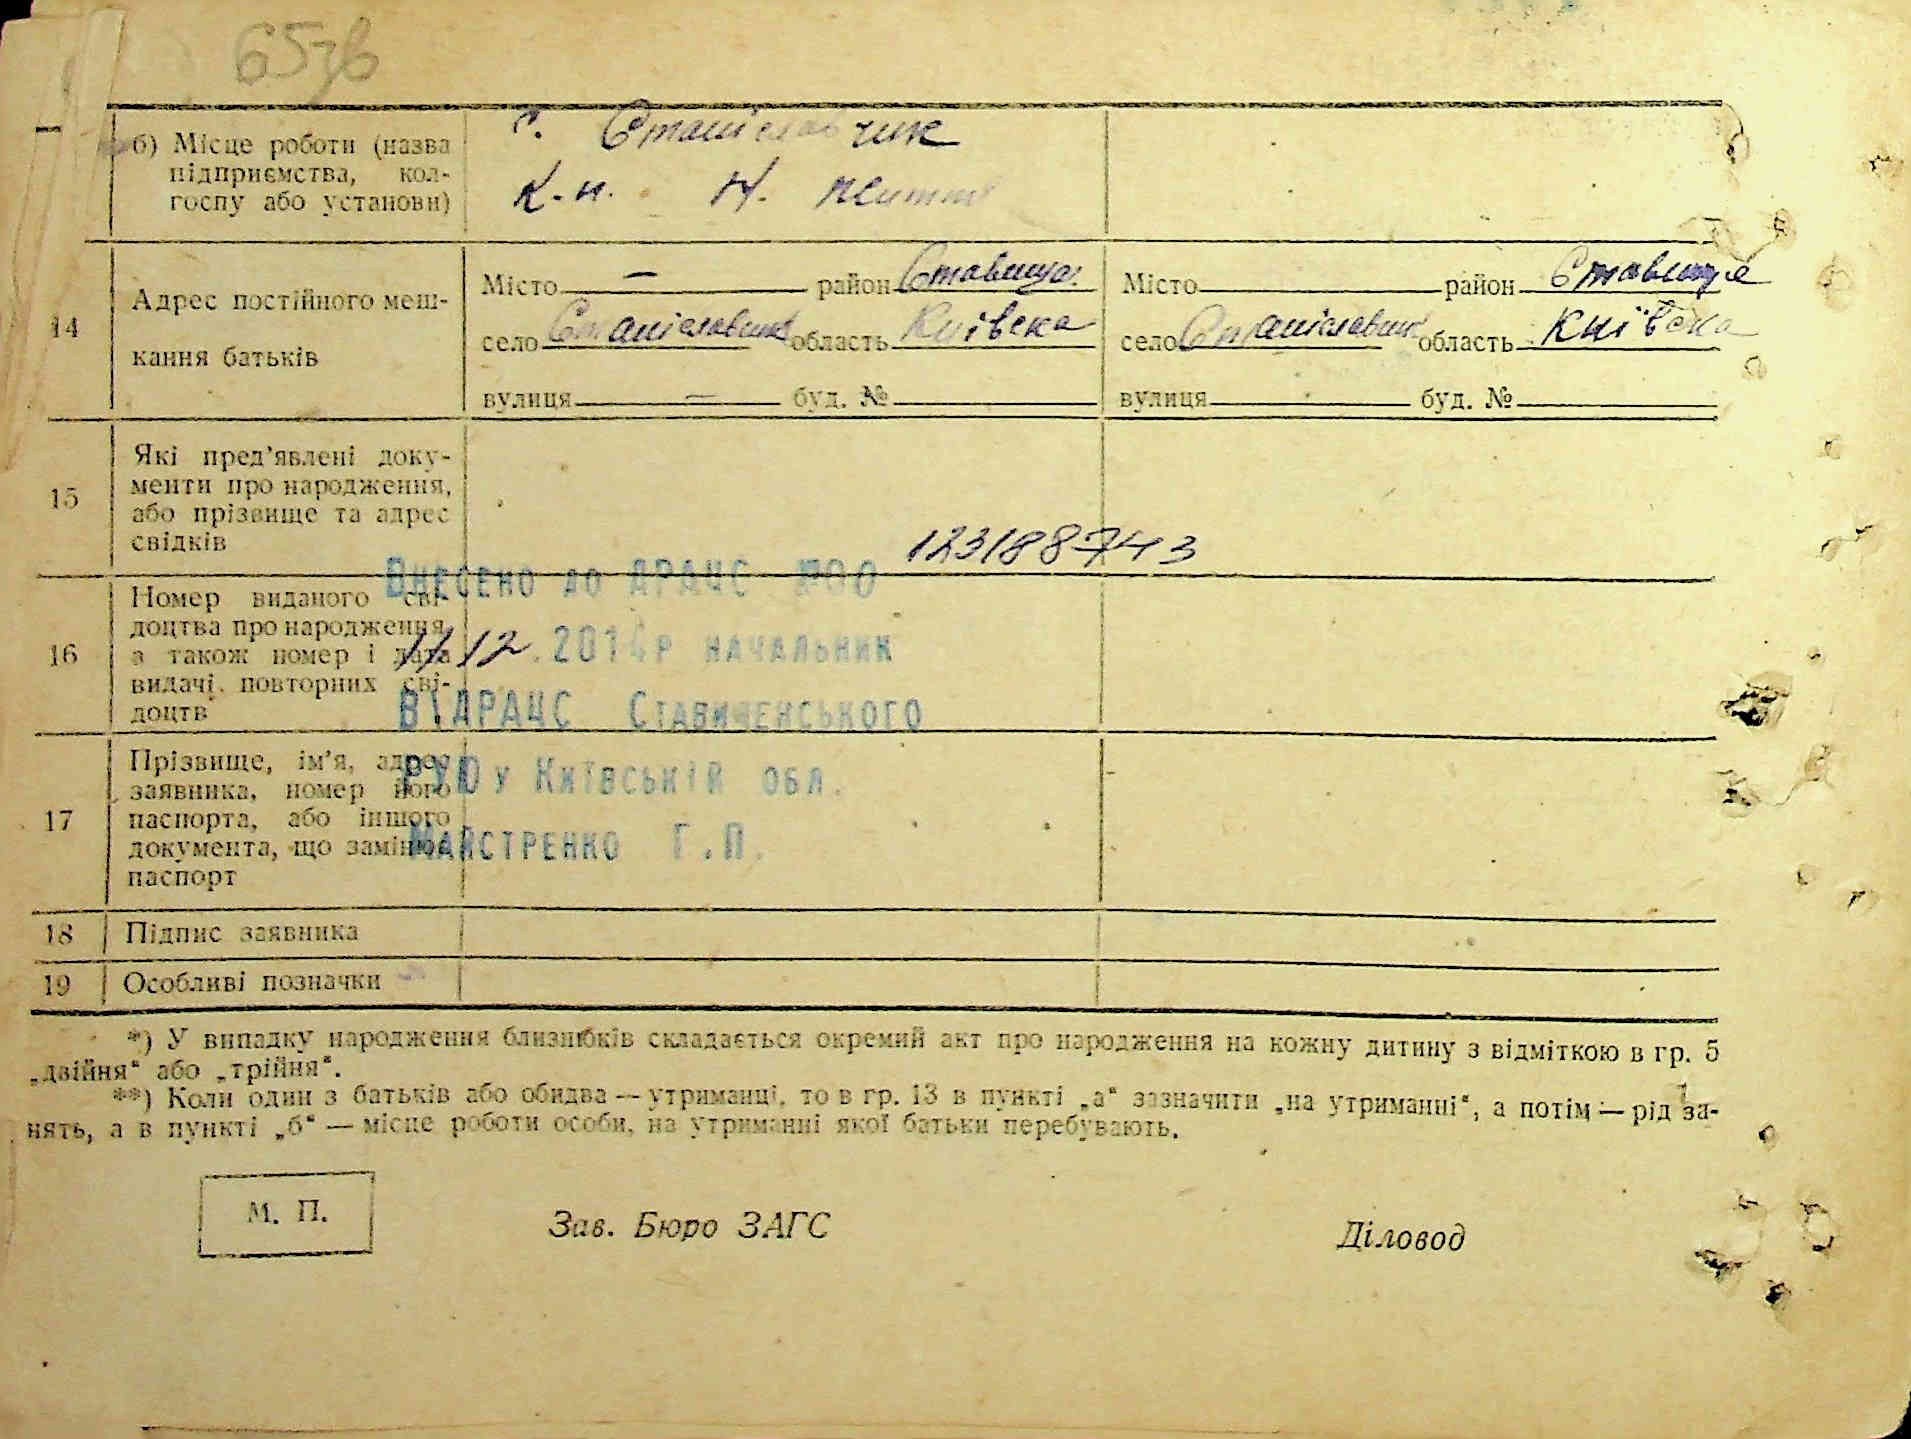 65зв
б) Місце роботи (назва
підприємства, кол-
госпу або установи)
с. Станіславчик
К.н. Н. життя
14
Адрес постійного меш-
кання батьків
Місто — район Ставища
село Станіславчик область Київска
вулиця — буд. №
Місто район Ставище
село Станіславчик область Київска
вулиця буд. №
15
Які пред'явлені доку-
менти про народження,
або прізвище та адрес
свідків
123188743
16
Номер виданого сві-
доцтва про народження,
а також номер і дата
видачі повторних сві-
доцтв
Внесено до ДРАЦС
11/12.2014р начальник
ВДРАЦС Ставищенського
РУЮ у Київській обл.
Майстренко Г.П.
17
Прізвище, ім'я, адрес
заявника, номер його
паспорта, або іншого
документа, що замінює
паспорт
18 Підпис заявника
19 Особливі позначки
*) У випадку народження близнюків складається окремий акт про народження на кожну дитину з відміткою в гр. 5
„двійня“ або „трійня“.
**) Коли один з батьків або обидва — утриманці, то в гр. 13 в пункті „а“ зазначити „на утриманні“, а потім — рід за-
нять, а в пункті „б“ — місце роботи особи, на утриманні якої батьки перебувають.
М. П.
Зав. Бюро ЗАГС
Діловод